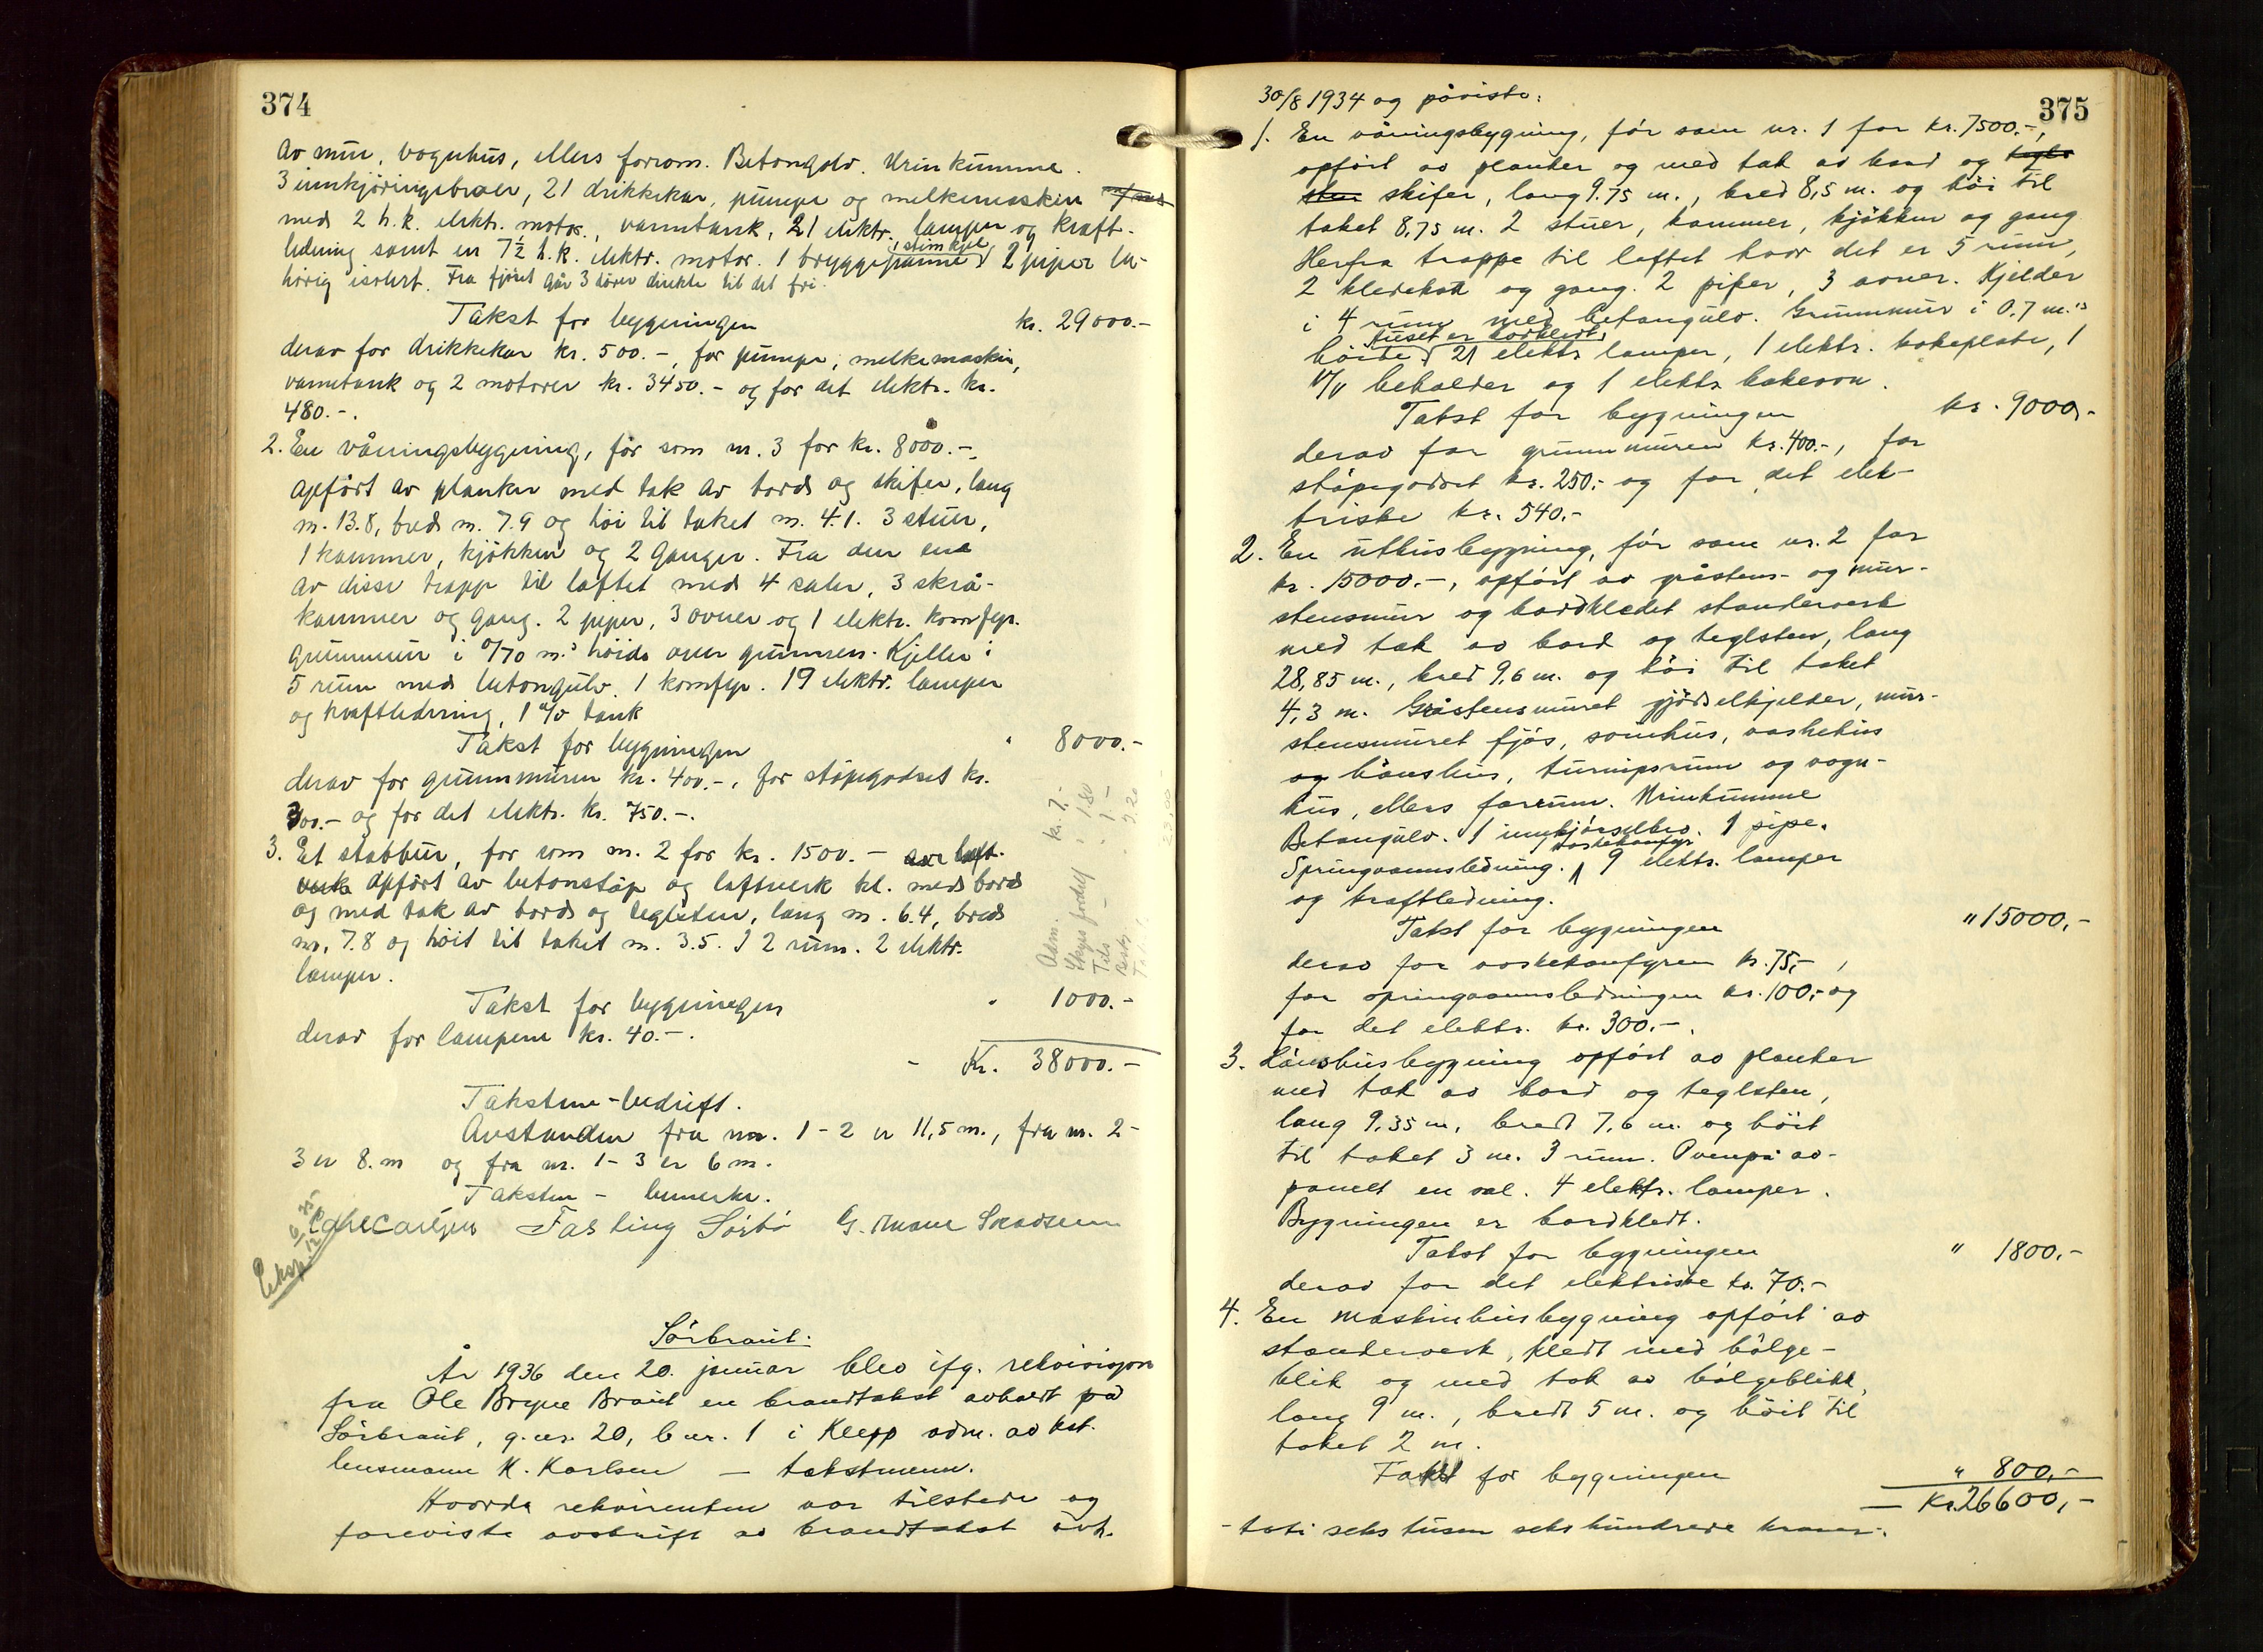 374
av mur, vognhus, ellers forrom. Betongolv. Urinkumme.
3 innkjøringsbroer, 21 drikkekar, pumpe og melkemaskin
med 2 h.k. elektr. motor, varmtank, 21 elektr. lamper og kraft-
ledning samt en 7½ h.k. elektr. motor. 1 bryggepanne, 2 piper be-
hørig isolert. Fra fjøset går 3 dører direkte til det fri.
Takst for bygningen kr. 29000.-
derav for drikkekar kr. 500.-, for pumpe, melkemaskin,
varmtank og 2 motorer kr. 3450.- og for det elektr. kr.
480.-.
2. En våningsbygning, før som nr. 3 for kr. 8000.-,
opført av planker med tak av bord og skifer, lang
m. 13.8, bred m. 7.9 og høi til taket m. 4.1. 3 stuer,
1 kammer, kjøkken og 2 ganger. Fra den ene
av disse trapp til loftet med 4 saler, 3 skrå-
kammer og gang. 2 piper, 3 ovner og 1 elektr. komfyr.
Grunnmur i 0/70 m.s høide over grunnen. Kjeller i
5 rum med betongulv. 1 komfyr. 19 elektr. lamper
og kraftledning, 1 v/v tank
Takst for bygningen " 8000.-
derav for grunnmuren kr. 400.-, for støpegodset kr.
300.- og for det elektr. kr. 750.-.
3. Et stabbur, før som nr. 2 for kr. 1500.- av loft.
verk opført av betonstøp og loftverk kl. med bord
og med tak av bord og teglsten, lang m. 6.4, bred
m. 7.8 og høit til taket m. 3.5. I 2 rum. 2 elektr.
lamper.
Takst for bygningen " 1000.-
derav for lampene kr. 40.-.
- Kr. 38000.-
Takstene - bedrift.
Avstanden fra nr. 1-2 er 11,5 m., fra nr. 2-
3 er 8. m og fra nr. 1-3 er 6 m.
Taksten - bemerkn.
Fasting Sørbø
Eksp.
Adm. kr. 7.-
Sørbraut:
År 1936 den 20. januar blev ifg. rekvisisjon
fra Ole Bryne Braut en brandtakst avholdt på
Sørbraut, g.nr. 20, b.nr. 1 i Klepp adm. av kst.
lensmann K. Karlsen – takstmenn.
Hvorda rekvirenten var tilstede og
foreviste avskrift av brandtakst avh.
375
30/8 1934 og påviste:
1. En våningsbygning, før som nr. 1 for kr. 7500.-,
opført av planker og med tak av bord og tegl-
sten skifer, lang 9.75 m., bred 8,5 m. og høi til
taket 8,75 m. 2 stuer, kammer, kjøkken og gang
Herfra trappe til loftet hvor det er 5 rum,
2 klædekott og gang. 2 piper, 3 ovner. Kjelder
i 4 rum med betongulv. Grunnmur i 0.7 m.s
Huset er bordkledt.
høide, 21 elektr lamper, 1 elektr. kokeplate, 1
v/v beholder og 1 elektr bakeovn.
Takst for bygningen kr. 9000,-
derav for grunnmuren kr. 400.-, for
støpegodset kr. 250,- og for det elek-
triske kr. 540.-
2. En uthusbygning, før som nr. 2 for
kr. 15000.-, opført av gråstens- og mur-
stensmur og bordkledet standerverk
med tak av bord og teglsten, lang
28,85 m., bred 9,6 m. og høi til taket
4,3 m. Gråstensmuret gjødselkjelder, mur-
stensmuret fjøs, svinhus, vaskehus
og hønshus, turnipsrum og vogn-
hus, ellers forrum. Urinkumme
Betongulv. 1 innkjørselbro. 1 pipe.
vaskekomfyr
Springvannsledning. 9 elektr. lamper
og kraftledning.
Takst for bygningen " 15000,-
derav for vaskekomfyren kr. 75,-,
for springvannsledningen kr. 100,- og
for det elektr. kr. 300.-.
3. Hønshusbygning opført av planker
med tak av bord og teglsten,
lang 9,35 m, bred 7,6 m. og høit
til taket 3 m. 3 rum. Ovenpå av-
panelt en sal. 4 elektr. lamper.
Bygningen er bordkledt.
Takst for bygningen " 1800.-
derav for det elektriske kr. 70.-
4. En maskinhusbygning opført av
standerverk, kledt med bølge-
blik og med tak av bølgeblikk,
lang 9 m., bredt 5 m. og høit til
taket 2 m.
Takst for bygningen " 800,-
— Kr. 26600,-
- toti seks tusen seks hundrede kroner -.